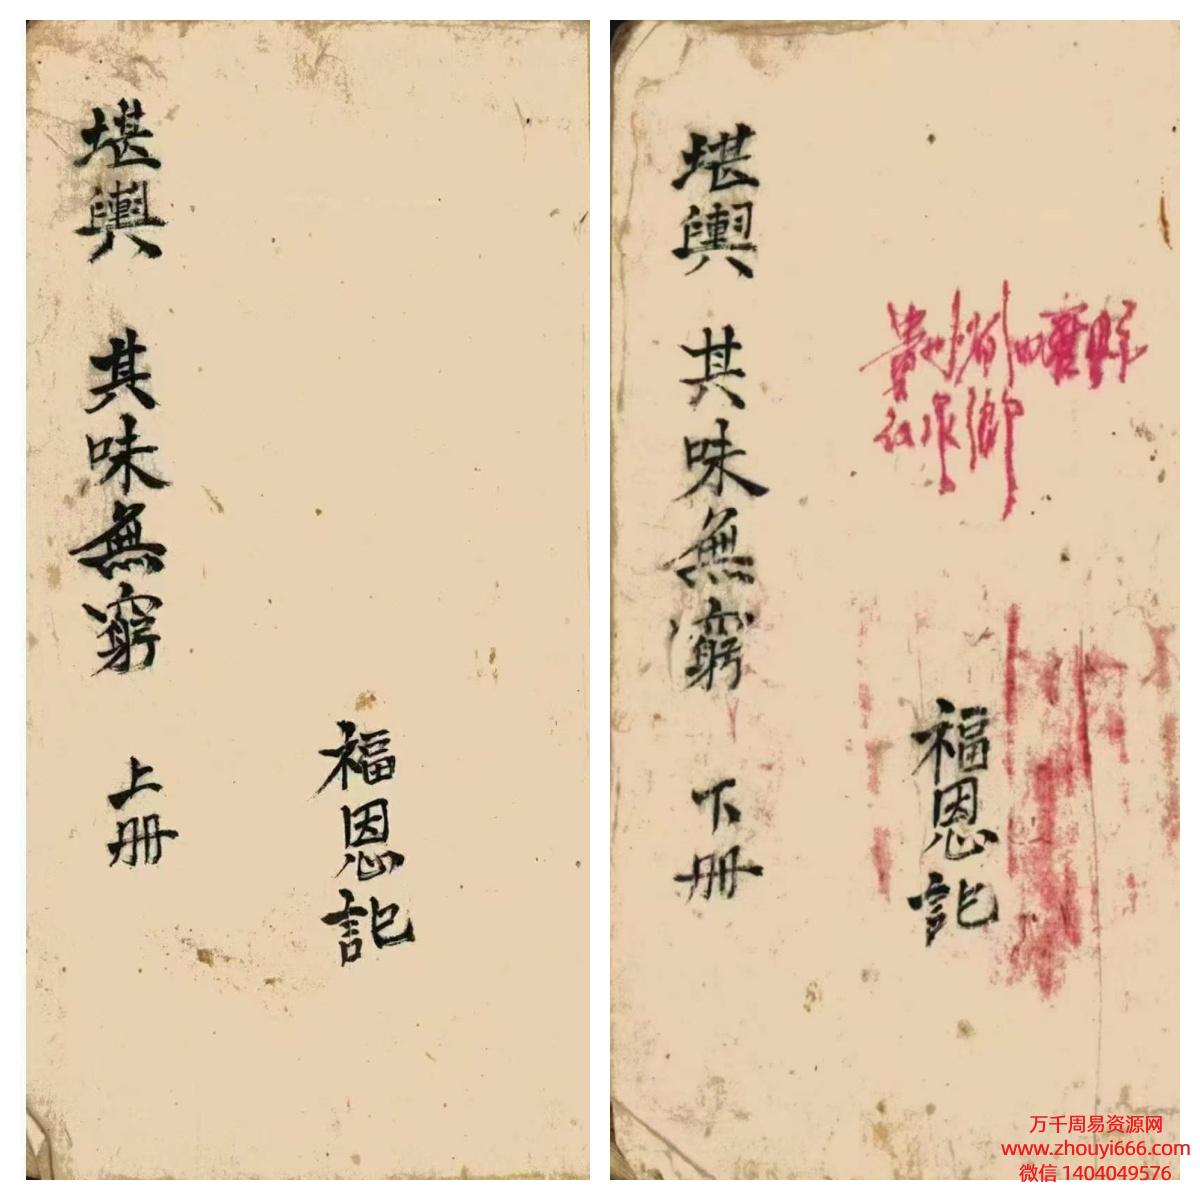 堪輿 其味無窮 上册
福恩記
堪輿 其味無窮 下册
貴州省
紅 鄉
福恩記
万千周易资源网
www.zhouyi666.com
微信 1404049576